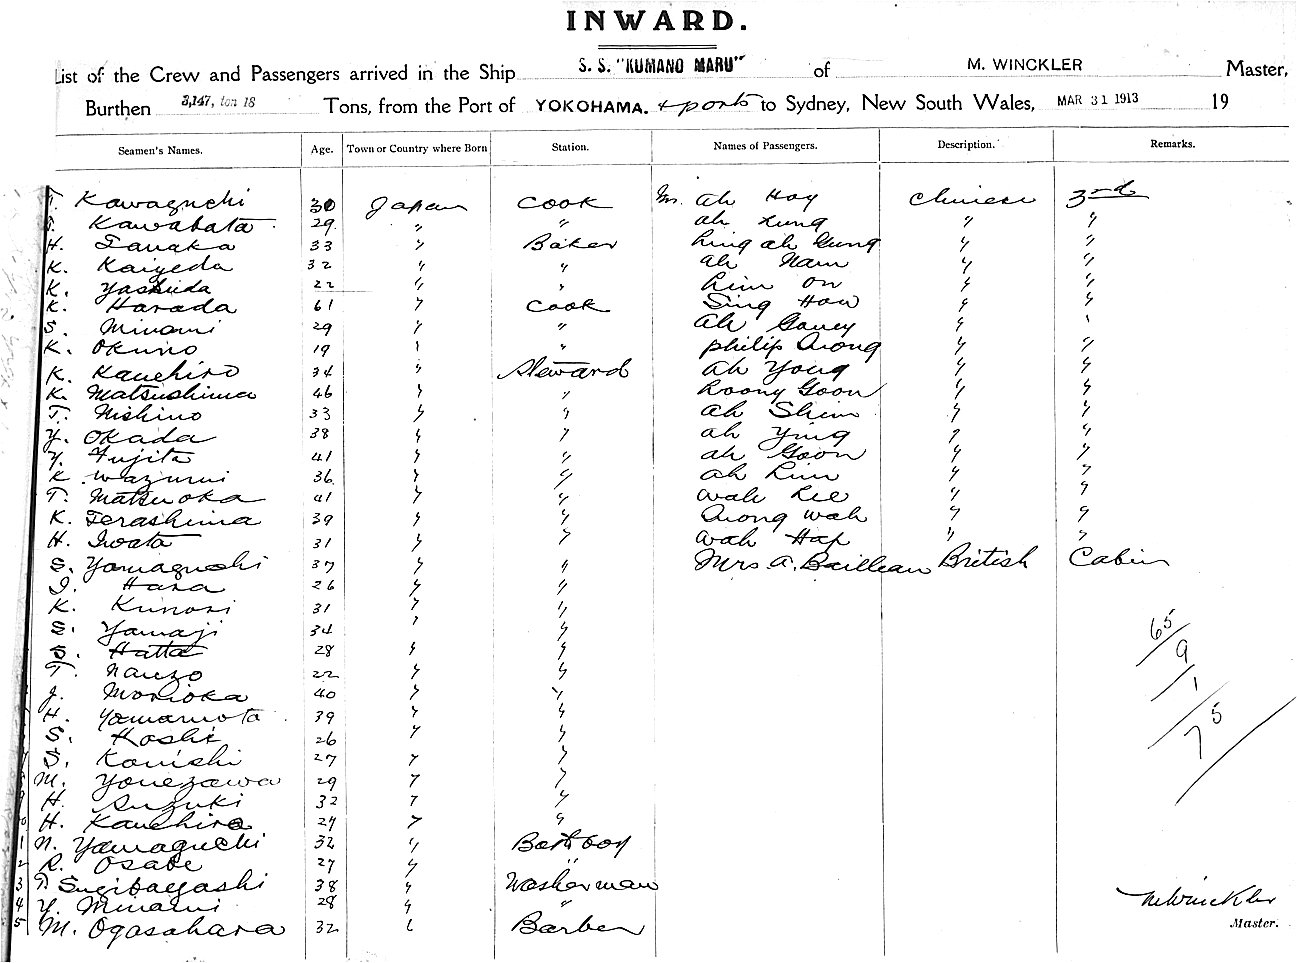 INWARD.
List of the Crew and Passengers arrived in the Ship S. S. "KUMANO MARU" of M. WINCKLER Master,
Burthen 3,147, ton 18 Tons, from the Port of YOKOHAMA. & ports to Sydney, New South Wales, MAR 31 1913 19
Seamen's Names. Age. Town or Country where Born Station. Names of Passengers. Description. Remarks.
T. Kawaguchi 30 Japan Cook Mr. Ah Hoy Chinese 3rd
Kawabata 29 " " Ah Kung " "
H. Tanaka 33 " Baker Ling Ah Gung " "
K. Kaiyeda 32 " " Ah Nam " "
K. Yashida 22 " " Lim On " "
K. Harada 61 " Cook Sing How " "
S. Minami 29 " " Ah " "
K. Okuno 19 " " Philip Wong " "
K. Kanehiro 34 " Steward Ah Yong " "
K. Matsushima 46 " " Loong Goon " "
T. Nishino 33 " " Ah Shim " "
Y. Okada 38 " " Ah Ying " "
Y. Fujita 41 " " Ah Goon " "
K. Wazumi 36 " " Ah Lim " "
T. Matsuoka 41 " " Wah Lee " "
K. Terashima 39 " " Wong Wah " "
H. Iwata 31 " " Wah Hap " "
S. Yamaguchi 37 " " Mrs A. Bailleau British Cabin
I. Hara 26 " "
K. Kunori 31 " "
S. Yamaji 34 " " 65
S. Hatta 28 " " 9
T. Nanzo 22 " " 1
J. Morioka 40 " "
H. Yamamota 39 " " 75
S. Hoshi 26 " "
S. Konishi 27 " "
M. Yonezawa 29 " "
H. Suzuki 32 " "
H. Kanehira 27 " "
1 N. Yamaguchi 32 " Bathboy
2 R. Osabe 27 " "
3 T. Sugibayashi 38 " Washerman
4 Y. Minami 28 " " M Winckler
5 M. Ogasahara 32 " Barber Master.